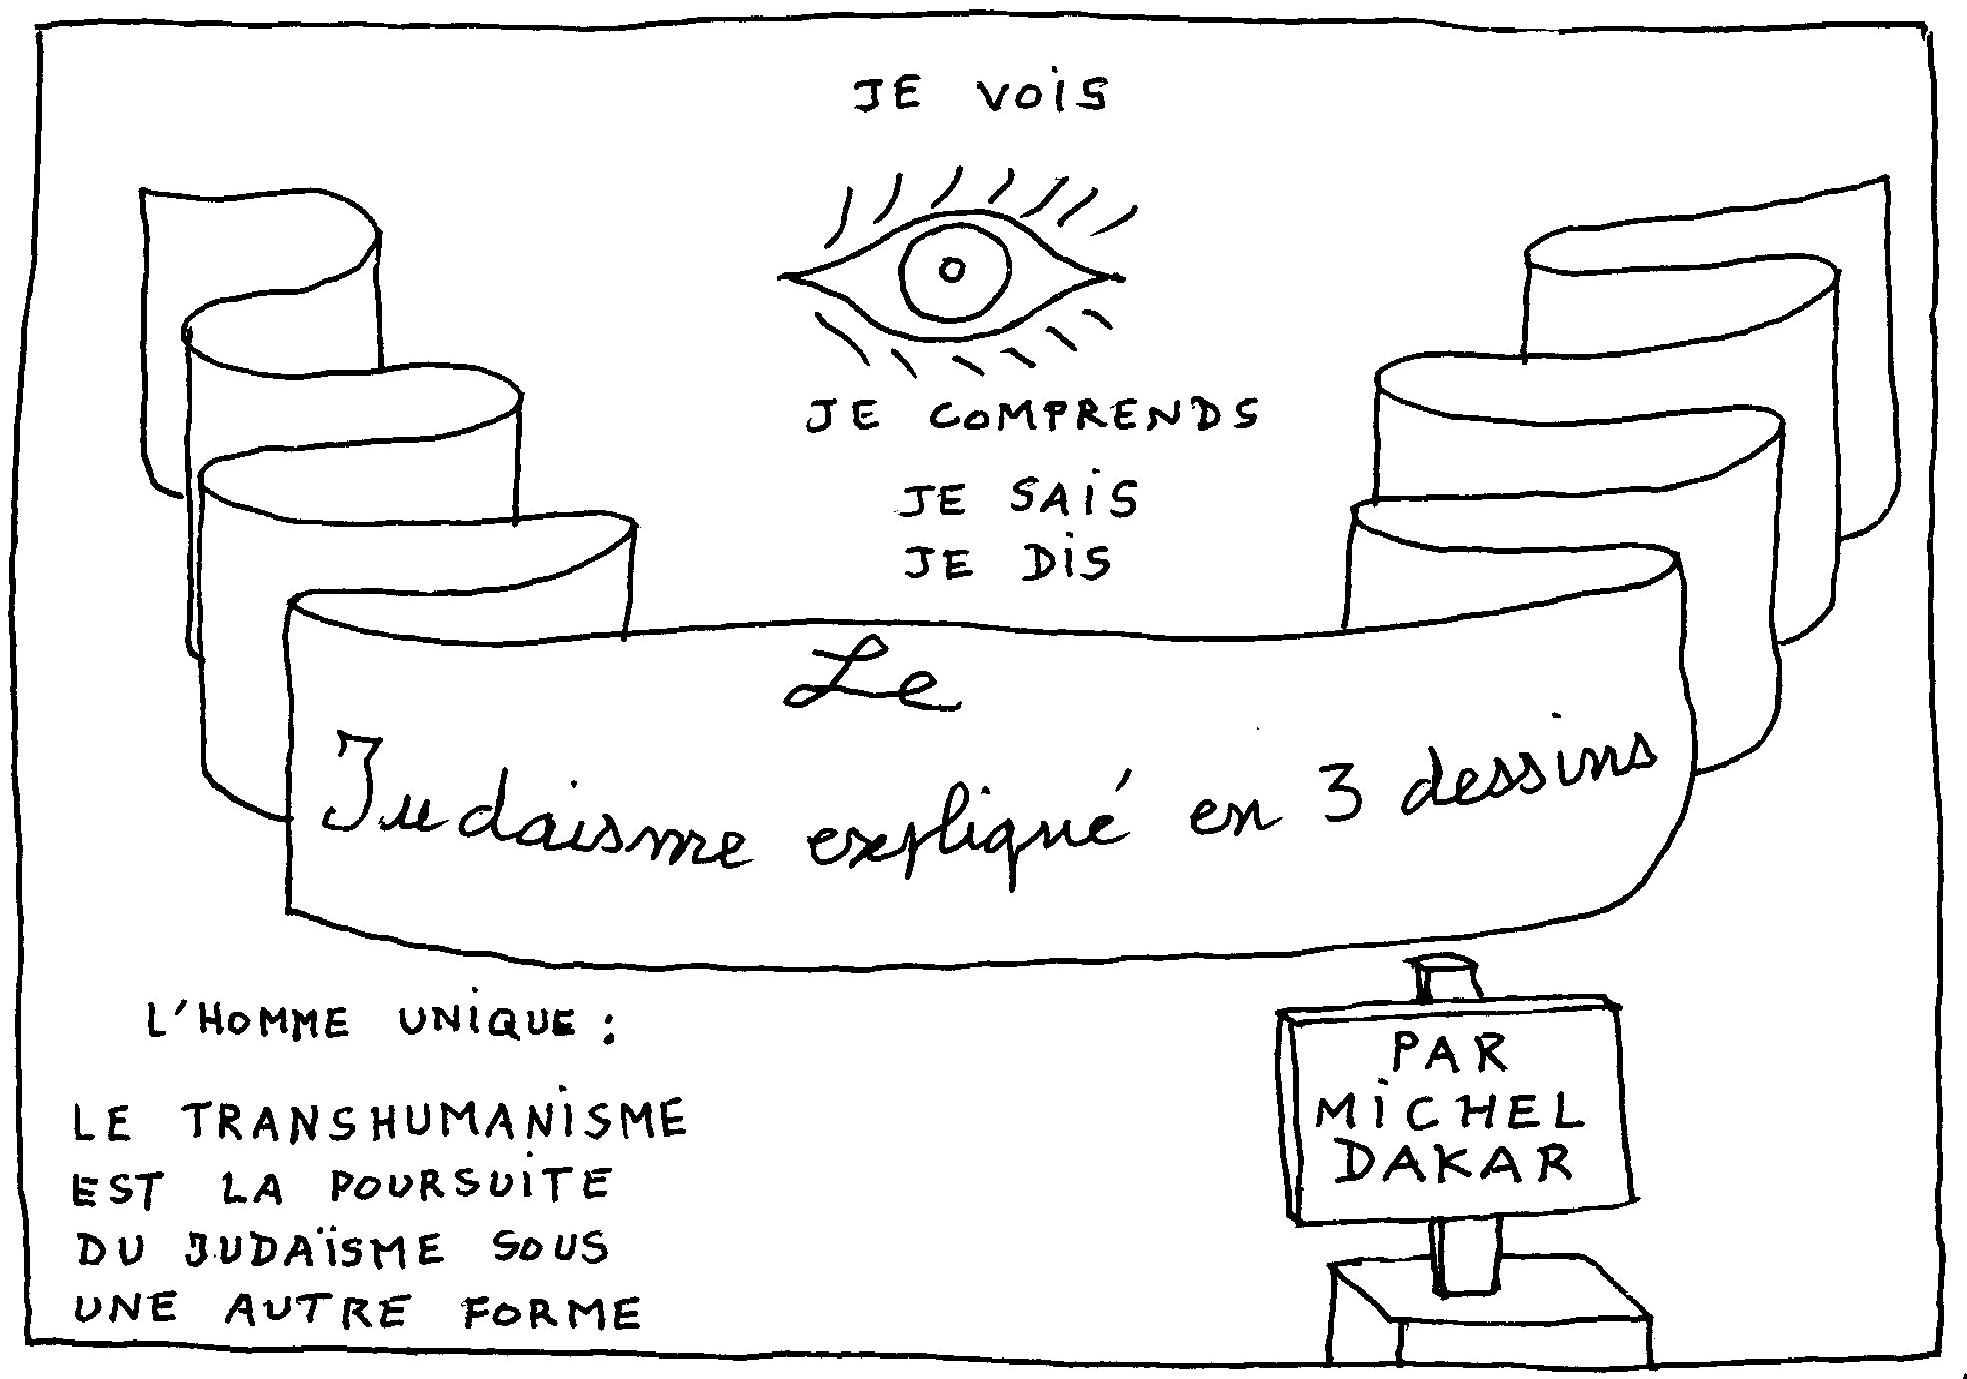 JE VOIS
JE COMPRENDS
JE SAIS
JE DIS
Le
Judaisme expliqué en 3 dessins
L'HOMME UNIQUE :
LE TRANSHUMANISME
EST LA POURSUITE
DU JUDAÏSME SOUS
UNE AUTRE FORME
PAR
MICHEL
DAKAR